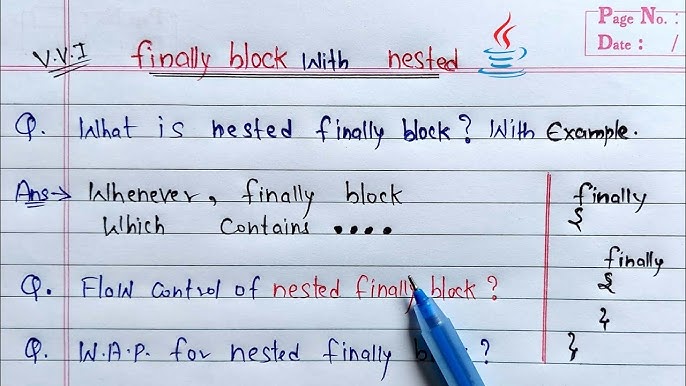 Page No. :
Date : /
V.V.I finally block with nested
Q. What is nested finally block? With Example.
Ans→ Whenever, finally block
Which contains ....
finally
{
finally
{
}
}
Q. Flow control of nested finally block?
Q. W.A.P. for nested finally ?